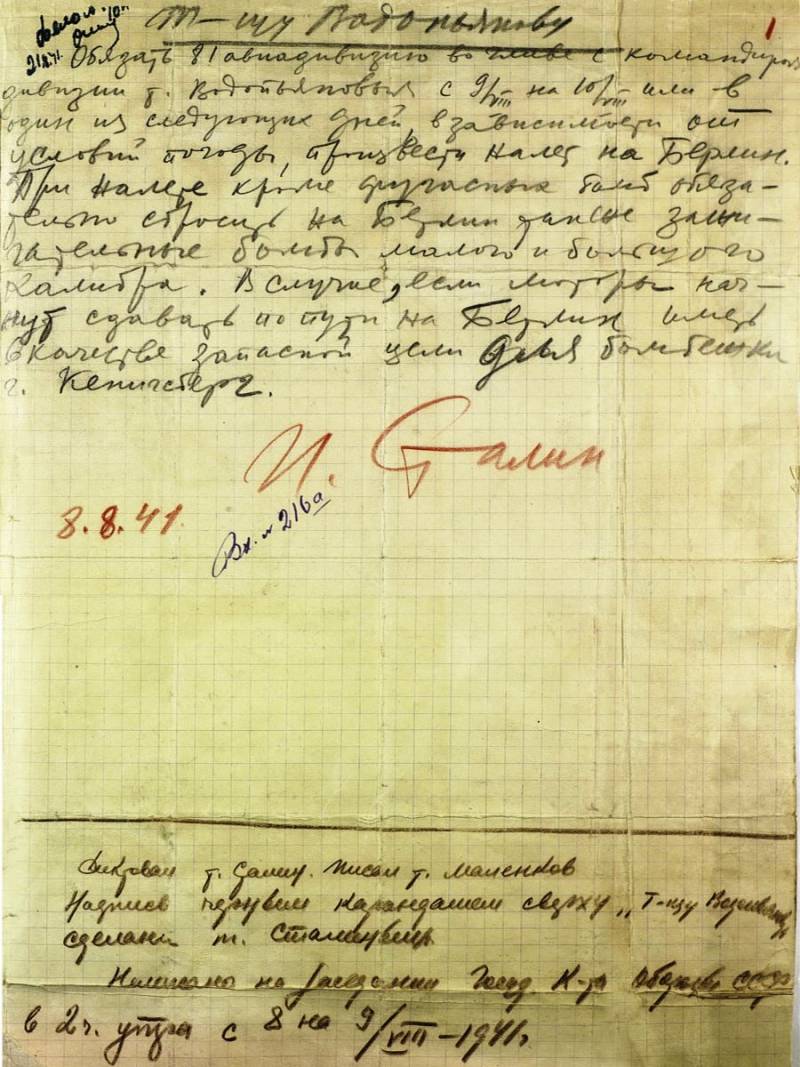 Т-щу Водопьянову
1
Обязать 81 авиадивизию во главе с командиром
дивизии т. Водопьяновым с 9/VIII на 10/VIII или в
один из следующих дней, в зависимости от
условий погоды, произвести налет на Берлин.
При налете кроме фугасных бомб обяза-
тельно сбросить на Берлин также зажи-
гательные бомбы малого и большого
калибра. В случае, если моторы нач-
нут сдавать по пути на Берлин иметь
в качестве запасной цели для бомбежки
г. Кенигсберг.
И. Сталин
8.8.41
Вх. № 216а
Диктовал т. Сталин. Писал т. Маленков
Надпись черным карандашом сверху „Т-щу Водопьянову"
сделана т. Сталиным
Написано на заседании Госуд. К-та Обороны СССР
в 2 ч. утра с 8 на 9/VIII–1941г.